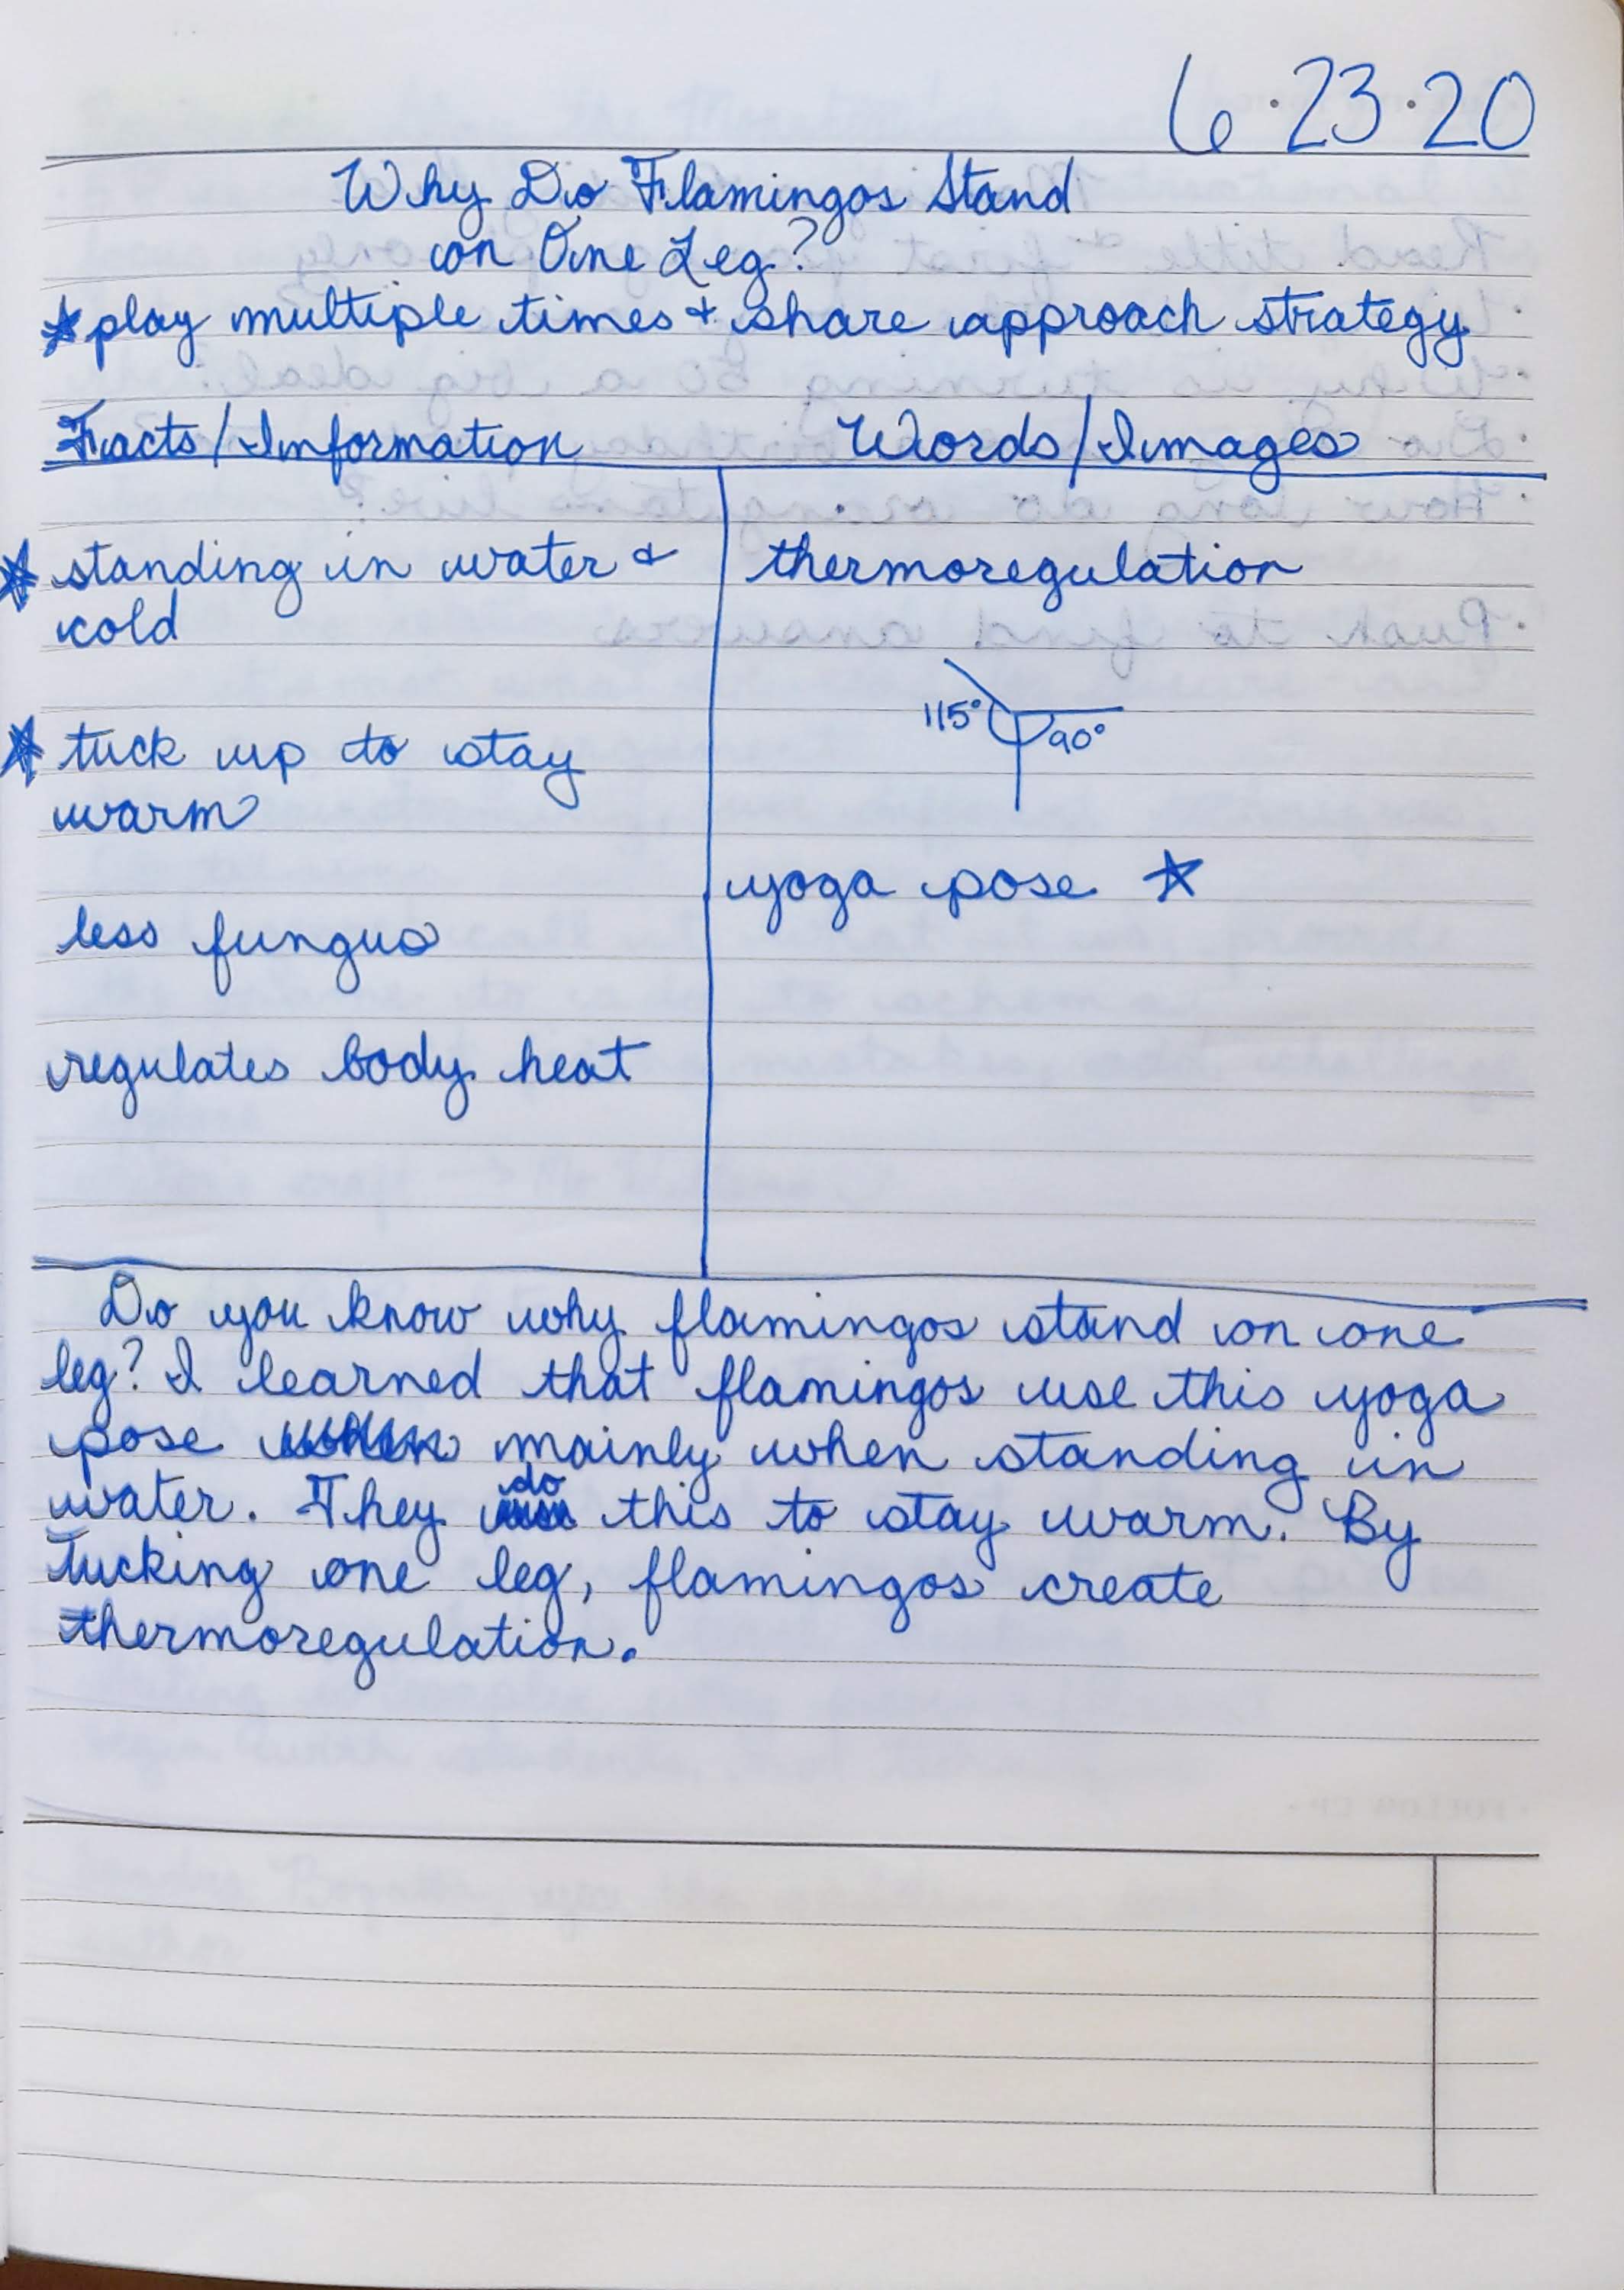 6·23·20
Why Do Flamingos Stand
on One Leg?
☆play multiple times & share approach strategy
Facts/Information Words/Images
☆ standing in water &
cold
☆ tuck up to stay
warm
less fungus
regulates body heat
thermoregulation
115° 90°
yoga pose ☆
Do you know why flamingos stand on one
leg? I learned that flamingos use this yoga
pose mainly when standing in
water. They do this to stay warm. By
tucking one leg, flamingos create
thermoregulation.